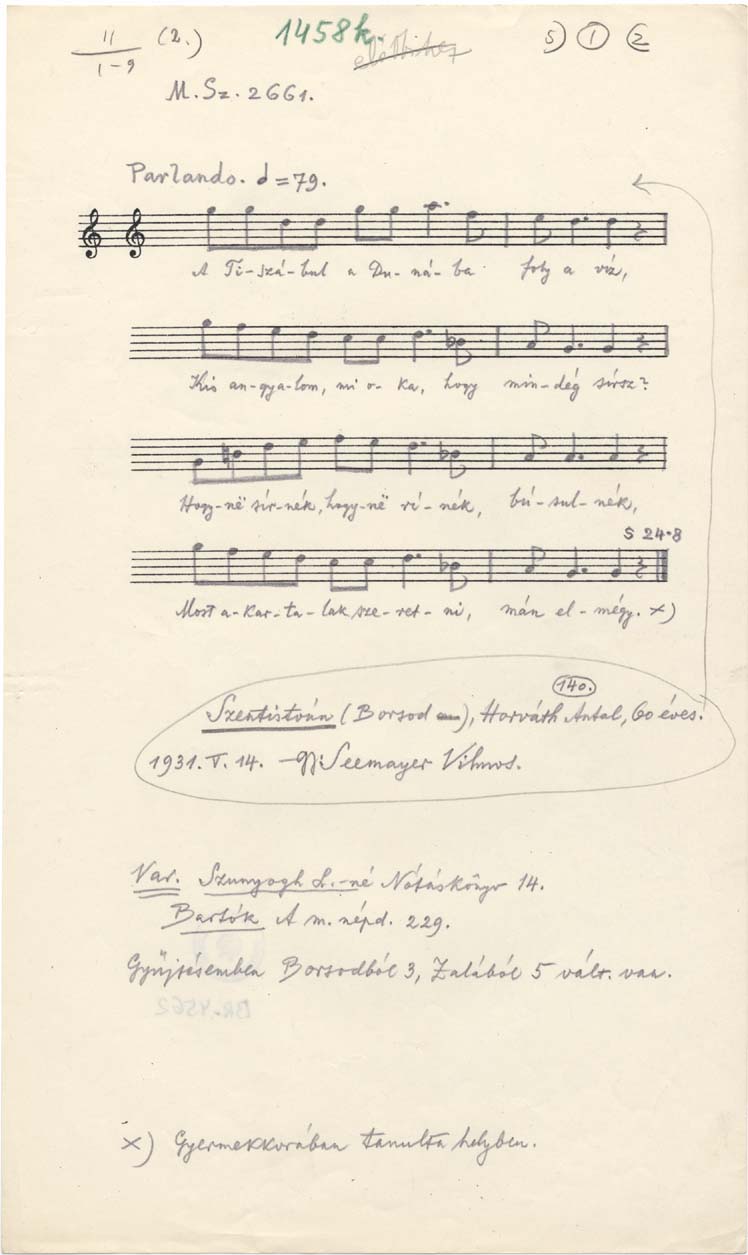 11 (2.) 1458k. előttihez 5) 1 2
1-9
M. Sz. 2661.
Parlando. d = 79.
A Ti-szá-bul a Du-ná-ba foly a víz,
Kis an-gya-lom, mi o-ka, hogy min-dég sírsz?
Hogy-në sír-nék, hogy-në rí-nék, bú-sul-nék,
S 24.8
Most a-kar-ta-lak sze-ret-ni, mán el-mégy. x)
140.
Szentistván (Borsod), Horváth Antal, 60 éves.
1931. V. 14. Gy: Seemayer Vilmos.
Var. Szunyogh L.-né Nótáskönyv 14.
Bartók A m. népd. 229.
Gyűjtésemben Borsodból 3, Zalából 5 vált. van.
BR.4562
x) Gyermekkorában tanulta helyben.